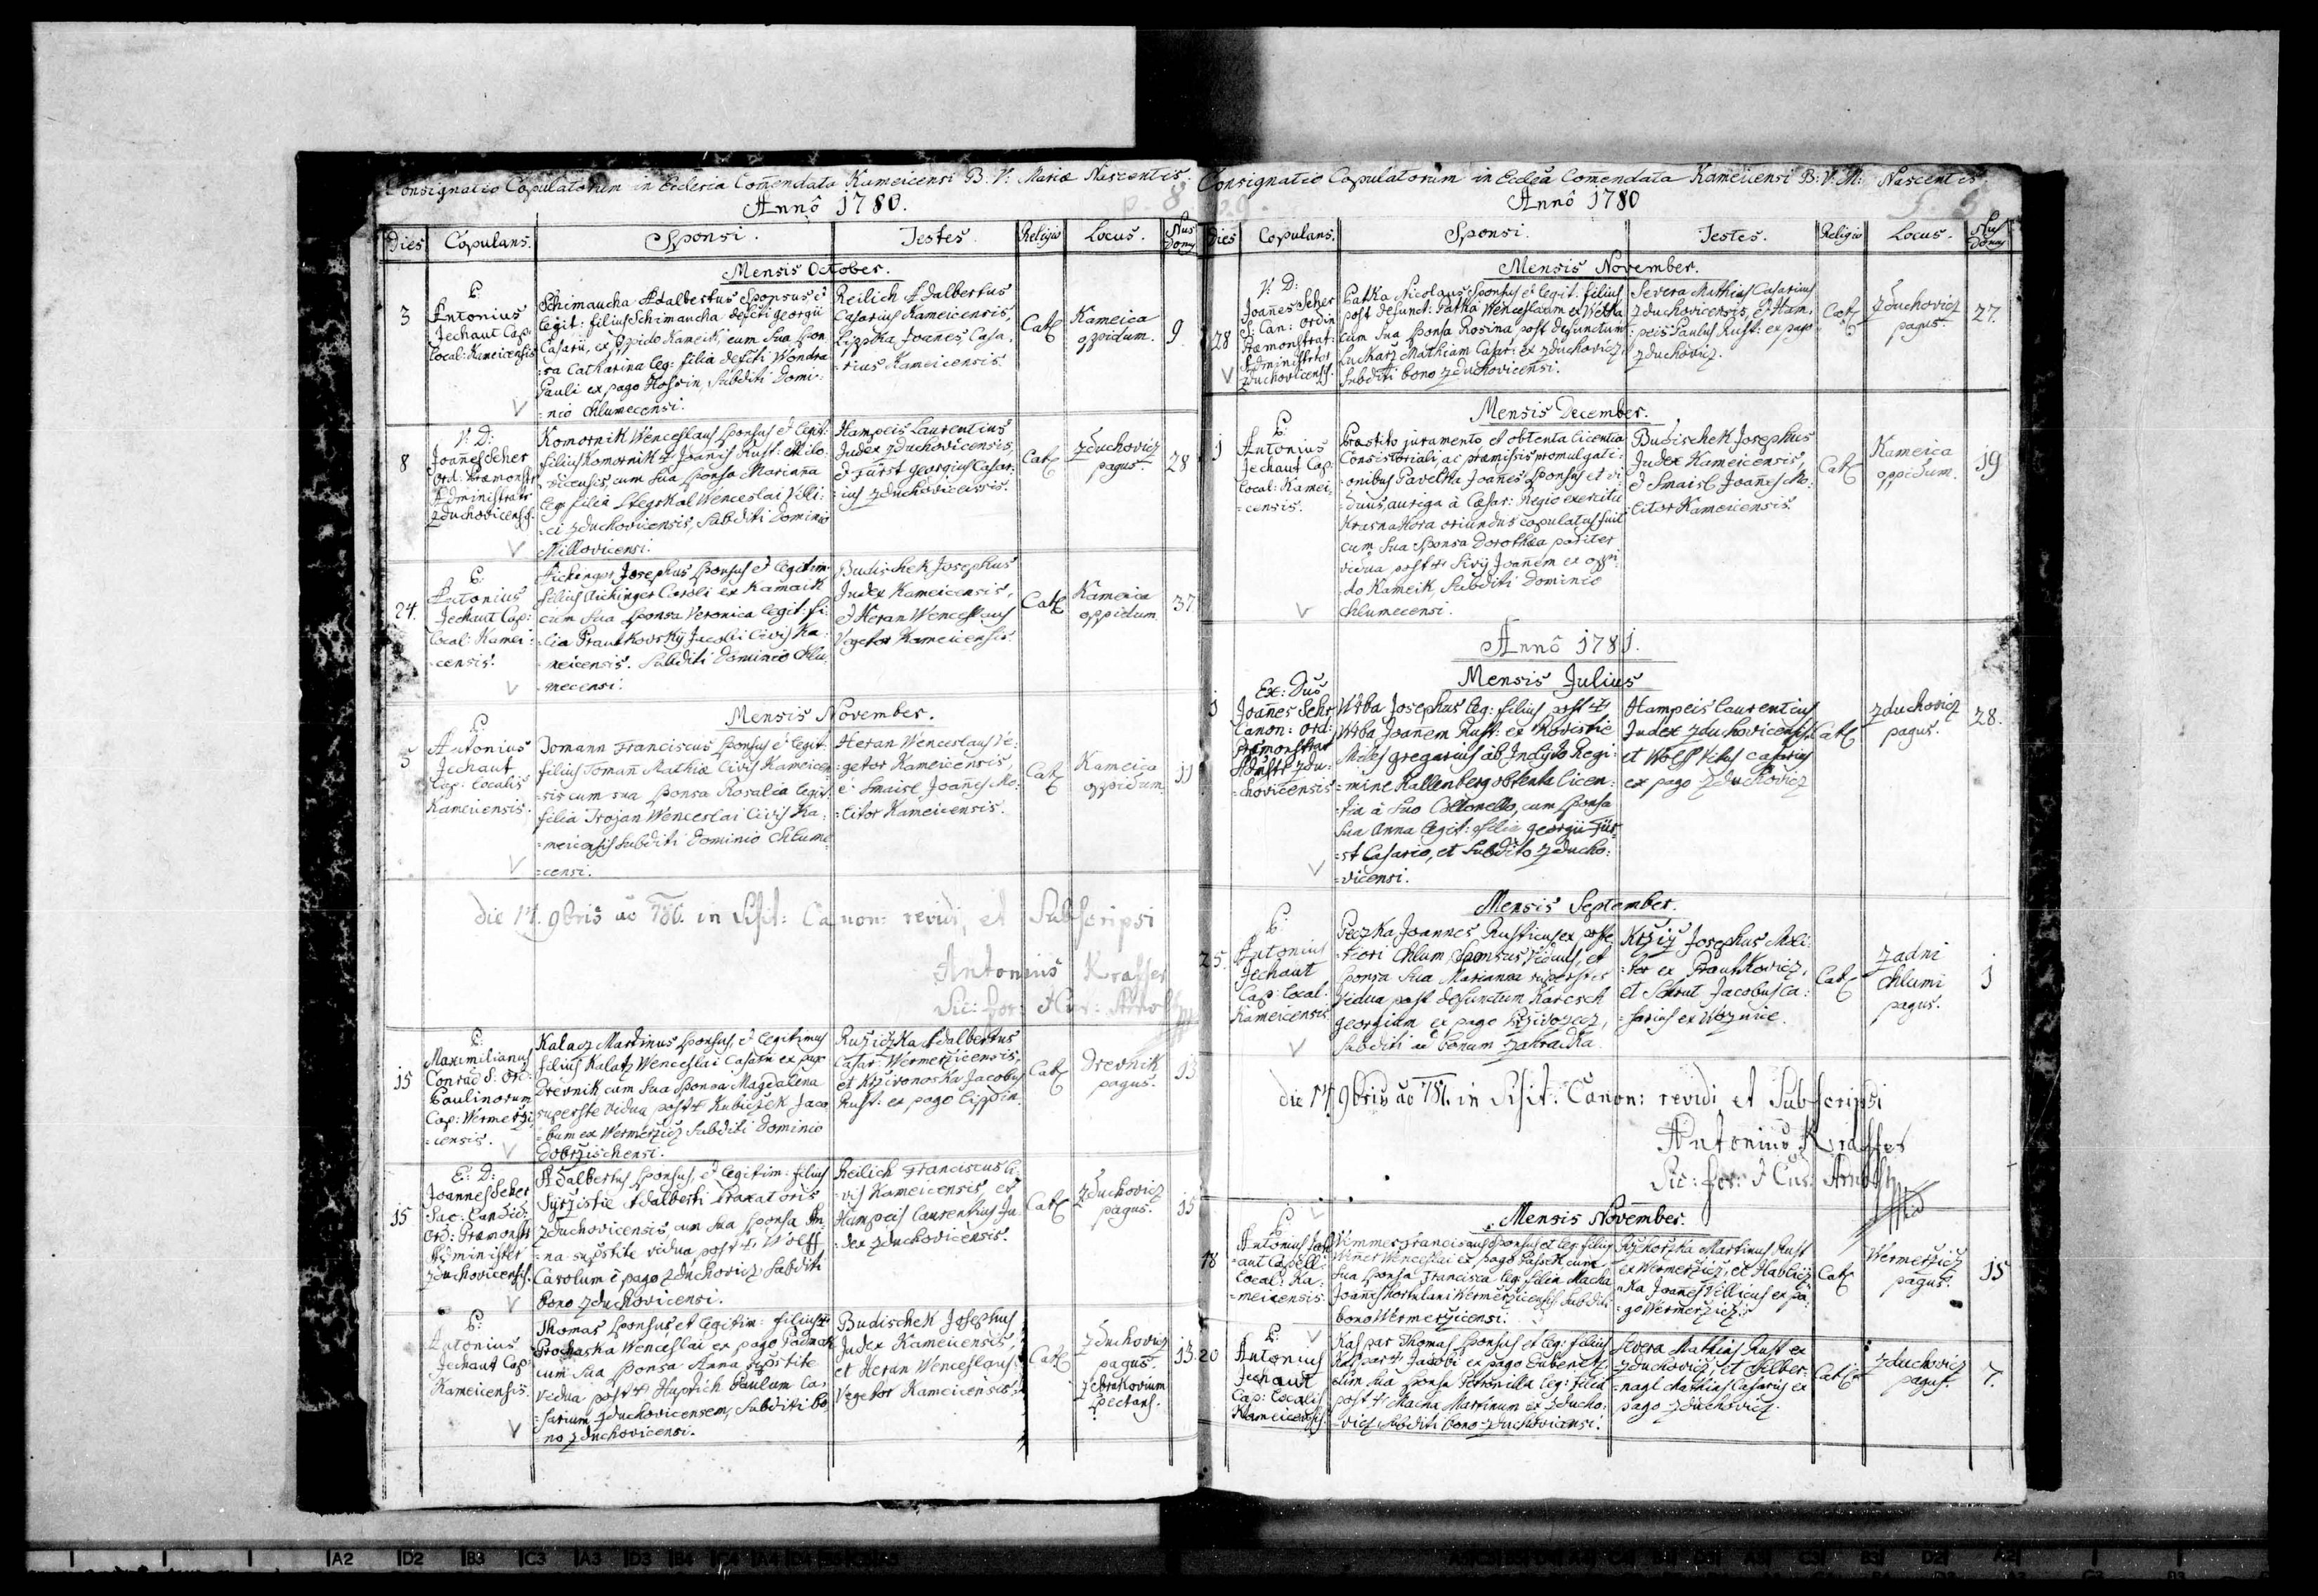 Consignatio Copulatorum in Ecclesia Comendata Kameicensi B: V: Mariæ Nascentis.
Annô 1780.
Dies Copulans. Sponsi. Testes. Religio Locus. Nus Domus
Mensis October.
3
P:
Antonius
Jechaut Cap:
Local: Kameicensis
Schimaucha Adalbertus Sponsus è
legit: filius Schimaucha defcti Georgii
Casarii, ex oppido Kameik, cum sua Spon
=sa Catharina leg: filia defcti Wondra
Pauli ex pago Hosgin, Subditi Domi:
=nio Chlumecensi.
Reilich Adalbertus
Casarius Kameicensis,
Lizpka Joañes, Casa:
=rius Kameicensis.
Cath
Kameica
oppidum.
9.
8
V: D:
Joañes Seher
Ord: Præmonstr
Administrator
Zduchovicensis.
Komornik Wenceslaus Sponsus et legit:
filius Komornik + Joañis Rust: Millo:
=vicensis, cum sua Sponsa Mariana
leg: filia Stegskal Wenceslai Villi:
=ci Zduchovicensis, Subditi Dominio
Millovicensi.
Hampeis Laurentius
Judex Zduchovicensis,
et Fürst Georgius Casar:
=ius Zduchovicensis.
Cath
Zduchovicz
pagus.
28
24.
P:
Antonius
Jechaut Cap:
Local: Kamei:
=censis.
Aichinger Josephus Sponsus et legitim
filius Aichinger Caroli ex Kamaik
cum sua Sponsa Veronica legit: fi:
=lia Prautkovský Jacobi Civis Ka:
meicensis. Subditi Dominio Chlu
=mecensi.
Budischek Josephus
Judex Kameicensis,
et Heran Wenceslaus
Vegetor Kameicensis.
Cath
Kameica
oppidum
37.
Mensis November.
5
P:
Antonius
Jechaut
Cap: Localis
Kameicensis.
Tomann Franciscus Sponsus et legit:
filius Tomañ Mathiæ Civis Kameicen
=sis cum sua Sponsa Rosalia legit:
filia Trojan Wenceslai Civis Ka:
=meicensis Subditi Dominio Chlume
=censi.
Heran Wenceslaus Ve:
=getor Kameicensis,
et Smaisl Joañes Mo:
=litor Kameicensis.
Cath
Kameica
oppidum
11
die 17. 9bris ao 781. in Visit: Canon: revidi, et Subscripsi
Antonius Kraffer
Vic: for: et Cur: Arnost
15
P:
Maximilianus
Conrad S: Ord:
Paulinorum
Cap: Wermerzi
=censis.
Kalacz Martinus Sponsus, et legitimus
filius Kalatz Wenceslai Casarii ex pago
Drevnik cum sua Sponsa Magdalena
superste vidua post + Kubiczek Jaco
=bum ex Wermerzicz Subditi Dominio
Dobrzischensi.
Ružiczka Adalbertus
Casar: Wermerzicensis,
et Krzivonoska Jacobus
Rust: ex pago Lippin.
Cath
Drevnik
pagus.
13
15
V: D:
Joannes Seher
Sac: Candid:
Ord: Præmonstr
Administor
Zduchovicensis.
Adalbertus Sponsus, et legitim: filius
Syržistie Adalberti Braxatoris
Zduchovicensis, cum sua Sponsa An:
=na supstite vidua post + Wolff
Carolum è pago Zduchovicz Subditi
bono Zduchovicensi.
Reilich Franciscus Ci:
=vis Kameicensis, et
Hampeis Laurentius Ju:
=dex Zduchovicensis.
Cath
Zduchovicz
pagus.
15
P:
Antonius
Jechaut Cap:
Kameicensis.
Thomas Sponsus, et legitim: filius +
Prochaska Wenceslai ex pago Podmok
cum sua Sponsa Anna supstite
vidua post + Huptich Paulum Ca:
=sarium Zduchovicensem, Subditi bo:
=no Zduchovicensi.
Budischek Josephus
Judex Kameicensis,
et Heran Wenceslaus
Vegetor Kameicensis.
Cath
Zduchovicz
pagus.
Zebrakovium
spectans.
13.
Consignatio Copulatorum in Ecclea Comendata Kameicensi B: V: M: Nascentis
Annô 1780
Dies Copulans. Sponsi. Testes. Religio Locus. Nus Domus
Mensis November.
28
V: D:
Joañes Seher
S: Can: Ordin
Præmonstrat:
Administrtor
Zduchovicensis.
Patka Nicolaus Sponsus et legit: filius
post defunct: Patka Wenceslaum ex Wetka
cum sua Sponsa Rosina post defunctum
Luckarz Mathiam Casar: ex Zduchovicz
Subditi bono Zduchovicensi.
Severa Mathias Casarius
Zduchovicensis, et Ham:
=peis Paulus Rust: ex pago
Zduchovicz.
Cath
Zduchovicz
pagus.
27.
Mensis December.
1
P:
Antonius
Jechaut Cap:
Local: Kamei
=censis.
Præstito juramento et obtenta licentia
Consistoriali, ac præmissis promulgati:
=onibus Pavelka Joañes Sponsus et vi
=duus, auriga à Cæsar: Regio exercitu
Krasnahora oriundus copulatus fuit
cum sua Sponsa Dorothea pariter
vidua post + Sivý Joañem ex oppi
=do Kameik, Subditi Dominio
Chlumecensi.
Budischek Josephus
Judex Kameicensis,
et Smaisl Joañes Mo:
=litor Kameicensis.
Cath
Kameica
oppidum.
19
Annô 1781.
Mensis Julius
1
Ex: Dus
Joañes Sehr
Canon: Ord:
Præmonstrat
Admstr Zdu:
=chovicensis
Wrba Josephus leg: filius post +
Wrba Joañem Rust: ex Rovistie
Miles gregarius ab Inclyto Regi:
=mine Kallenberg obtenta licen:
=tia à suo Collonello, cum Sponsa
sua Anna legit: filia Georgii Für
=st Casario, et Subdito Zducho:
=vicensi.
Hampeis Laurentius
Judex Zduchovicensis
et Wolff Vitus Casarius
ex pago Zduchovicz
Cath
Zduchovicz
pagus.
28.
Mensis September.
25.
P:
Antonius
Jechaut
Cap: Local:
Kameicensis
Peczka Joannes Rusticus ex poste:
=riori Chlum, Sponsus viduus, et
Sponsa sua Marianna superstes
vidua post defunctum Karesch
Georgium ex pago Krzivozecz,
Subditi ad bonum Zahradka.
Krziž Josephus Moli:
=tor ex Prautkovicz,
et Schrut Jacobus Ca:
=sarius ex Woznice.
Cath
Zadni
Chlumi
pagus.
1
die 17. 9bris ao 781. in Visit: Canon: revidi et Subscripsi
Antonius Kraffer
Vic: for: et Cur: Arnost
Mensis November.
18
P:
Antonius Jech
=aut Capell:
Local: Ka:
=meicensis
Wimmer Franciscus Sponsus et leg: filius
Wimer Wenceslai ex pago Passek, cum
sua Sponsa Francisca leg: filia Macha
Joañis Hortulani Wermerzicensis Subditi
bono Wermerzicensi.
Rzehorzka Martinus Rust
ex Wermerzicz, et Havlicz
=ka Joañes Villicus ex pa:
=go Wermerzicz.
Cath
Wermerzicz
pagus.
15
20
P:
Antonius
Jechaut
Cap: Localis
Kameicensis
Kaspar Thomas Sponsus et leg: filius
Kaspar + Jacobi ex pago Bubenecz
cum sua Sponsa Petronilla leg: filia
post + Macha Martinum ex Zducho:
=vicz Subditi bono Zduchovicensi.
Severa Mathias Rust ex
Zduchovicz et Helber:
=nagl Mathias Casarius ex
pago Zduchovicz.
Cath
Zduchovicz
pagus.
7